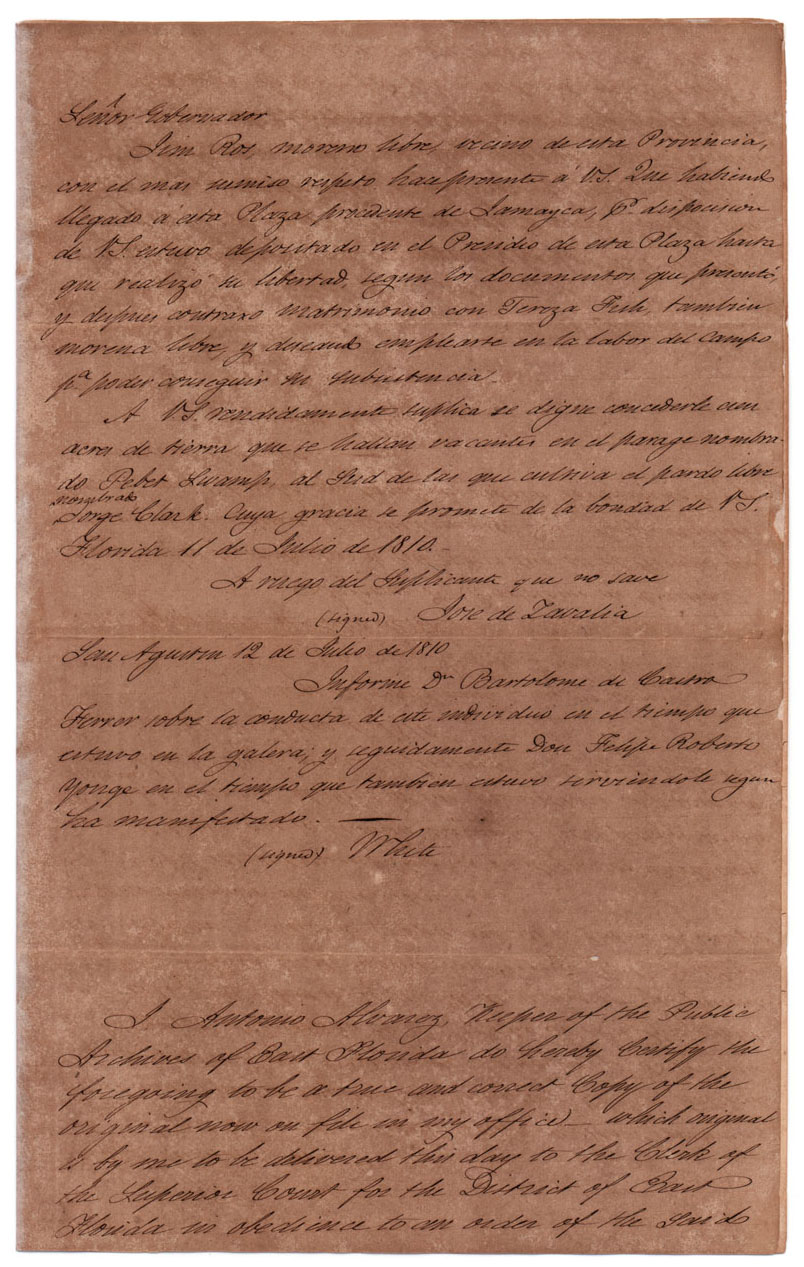 Señor Gobernador
Jim Ros, moreno libre, vecino de esta Provincia,
con el mas sumiso respeto hace presente á V.S. Que habiendo
llegado á esta Plaza procedente de Jamayca, pr. dispocision
de V.S. estuvo depositado en el Presidio de esta Plaza hasta
que realizó su libertad, segun los documentos que presentó,
y despues contraxo matrimonio con Tereza Fish, tambien
morena libre, y deseando emplearse en la labor del Campo
pa. poder conseguir su subsistencia.
A V.S. rendidamente suplica se digne concederle cien
acres de tierra que se hallan vacantes en el parage nombra-
do Pebet Swamp, al Sud de las que cultiva el pardo libre
nombrado
Jorge Clark. Cuya gracia se promete de la bondad de V.S.
Florida 11 de Julio de 1810.
A ruego del Suplicante que no save
(signed) Jose de Zavalia
San Agustin 12 de Julio de 1810
Informe Dn Bartolome de Castro
Ferrer sobre la conducta de este individuo en el tiempo que
estuvo en la galera; y seguidamente Don Felipe Roberto
Yonge en el tiempo que tambien estuvo serviendole segun
ha manifestado. —
(signed) White
I Antonio Alvarez, Keeper of the Public
Archives of East Florida do hereby Certify the
foregoing to be a true and correct Copy of the
original now on file in my office — which original
is by me to be delivered this day to the Clerk of
the Superior Court for the District of East
Florida in obedience to an order of the said